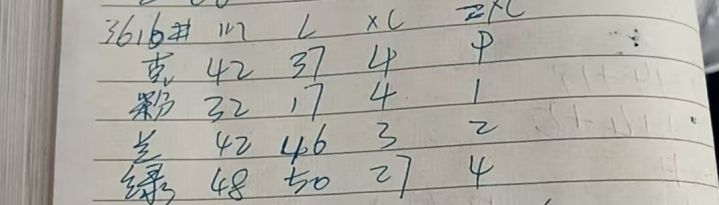 3616# M L XL 2XL
克 42 37 4 P
粉 32 17 4 1
兰 42 46 3 2
绿 48 50 27 4